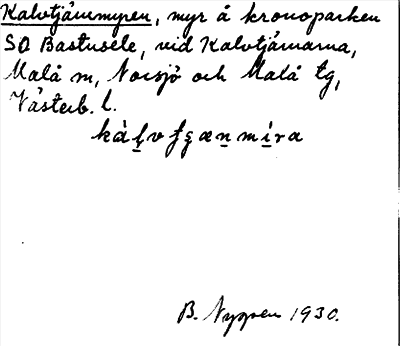 Kalvtjärnmyren, myr å kronoparken
SO Bastusele, vid Kalvtjärnarna,
Malå sn, Norsjö och Malå tg,
Västerb. l.
B. Nygren 1930.